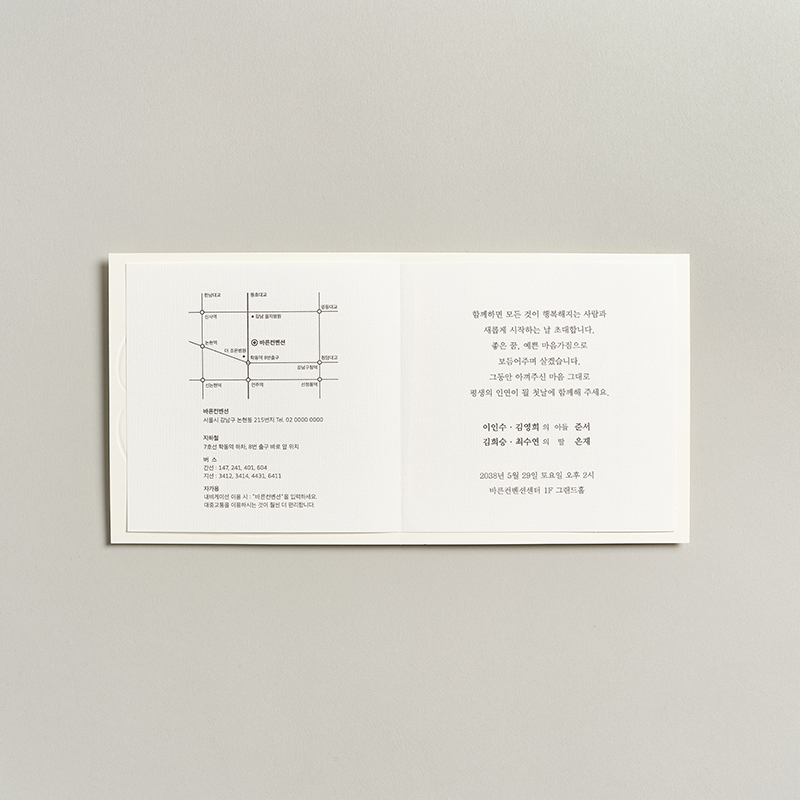 한남대교
동호대교
영동대교
신사역
강남 을지병원
논현역
바른컨벤션
더 조은병원
학동역 8번출구
청담대교
강남구청역
신논현역
언주역
선정릉역
바른컨벤션
서울시 강남구 논현동 215번지 Tel. 02 0000 0000
지하철
7호선 학동역 하차, 8번 출구 바로 앞 위치
버 스
간선 : 147, 241, 401, 604
지선 : 3412, 3414, 4431, 6411
자가용
내비게이션 이용 시 : "바른컨벤션"을 입력하세요.
대중교통을 이용하시는 것이 훨씬 더 편리합니다.
함께하면 모든 것이 행복해지는 사람과
새롭게 시작하는 날 초대합니다.
좋은 꿈, 예쁜 마음가짐으로
보듬어주며 살겠습니다.
그동안 아껴주신 마음 그대로
평생의 인연이 될 첫날에 함께해 주세요.
이인수 · 김영희 의 아들 준서
김희승 · 최수연 의 딸 은재
2038년 5월 29일 토요일 오후 2시
바른컨벤션센터 1F 그랜드홀